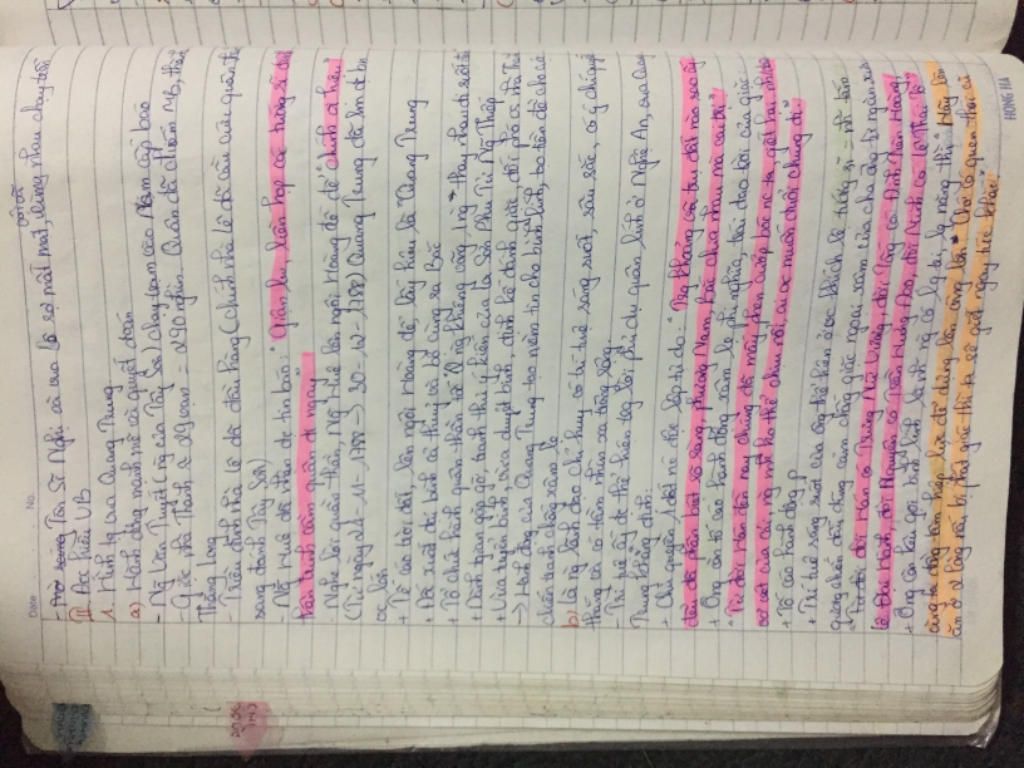 Date No.
nỗi dã
- Mở sáng Tôn Sĩ Nghị cả vua Lê sợ mất mật, cùng nhau chạy trốn
II Đọc hiểu VB
1. Hình tg vua Quang Trung
a) Hành động mạnh mẽ và quyết đoán
- Ng Văn Tuyết (ng của Tây Sơn) chạy trạm vào Nam cấp báo
- Giặc nhà Thanh 29 vạn = 290 nghìn. Quân đã chiếm MB, thành
Thăng Long
Triều đình nhà Lê đã đầu hàng (chính nhà Lê đã cầu cứu quân th
sang đánh Tây Sơn)
- Ng Huệ đã nhận đc tin báo: "Giận lắm, liền họp các tướng sĩ định
thân chinh cầm quân đi ngay"
- Nghe lời quần thần, Ng Huệ lên ngôi Hoàng đế để "chính vị hiệu"
(Từ ngày 24 - 11 - 1788 → 30 - 12 - 1788) Quang Trung đã làm đc bn
vc lớn
+ Tế cáo trời đất, lên ngôi Hoàng đế, lấy hiệu là Quang Trung
+ Đốc suất đại binh cả thủy và bộ cùng ra Bắc
+ Tổ chức hành quân thần tốc "2 ng khiêng võng 1 ng" thay nhau đi suốt
+ Đích thân gặp gỡ, tranh thủ ý kiến của La Sơn Phu Tử Ng Thiếp
+ Vừa tuyển binh, vừa duyệt binh, định kế đánh giặc, đối phó vs nhà Th
→ Hành động của Quang Trung tạo niềm tin cho binh lính, tạo tiền đề cho cuộc
chiến tranh chống xâm lc
b) Là ng lãnh đạo chỉ huy có trí tuệ sáng suốt, sâu sắc, có ý chí quyết
thắng và có tầm nhìn xa trông rộng
- Trí tuệ ấy đc thể hiện trg lời phủ dụ quân lính ở Nghệ An, vua Quang
Trung khẳng định:
+ Chủ quyền 1 đất nc độc lập tự do: "Trg khoảng vũ trụ đất nào sao ấy
đều đã phân biệt rõ ràng, phương Nam, phương Bắc chia nhau mà cai trị"
+ Ông còn tố cáo hành động xâm lc phi nghĩa, trái đạo trời của giặc
"Từ đời Hán đến nay chúng đã mấy phen cướp bóc nc ta, giết hại nhân dân,
vơ vét của cải, ng mình ko thể chịu nổi, ai vc muốn đuổi chúng đi"
+ Tố cáo hành động p
+ Trí tuệ sáng suốt của ông thể hiện ở vc khích lệ tướng sĩ = nh tấm
gương chiến đấu dũng cảm chống giặc ngoại xâm của cha ông từ ngàn xưa
"Từ đời đời Hán có Trưng Nữ Vương, đời Tống có Đinh Tiên Hoàng,
Lê Đại Hành, đời Nguyên có Trần Hưng Đạo, đời Minh có Lê Thái Tổ"
+ Ông còn kêu gọi binh lính "nh ng có lg tri, lg năng thì" Hãy nên
cùng ta đồng tâm hiệp lực để dựng lên công lớn". Chớ có quen thói cũ
ăn ở 2 lòng nếu bị phát giác thì ta sẽ giết ngay tức khắc"
HONG HA